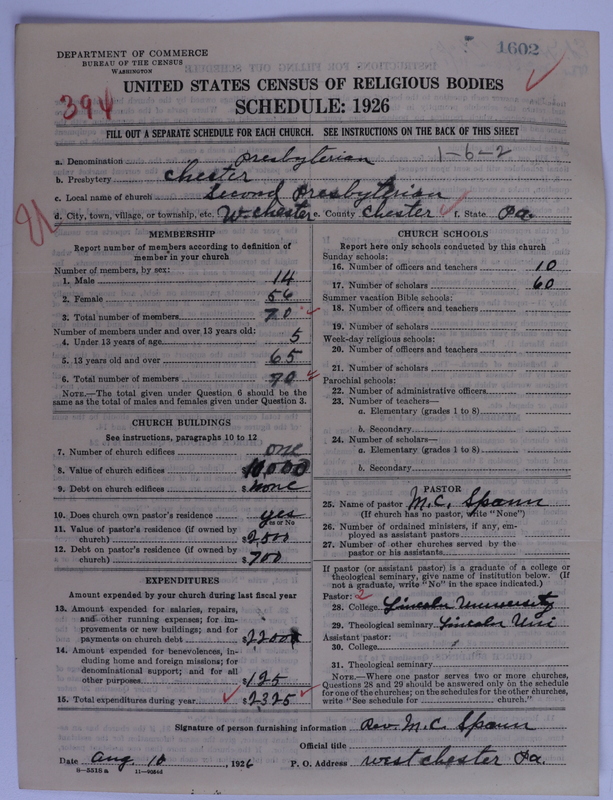 1602
DEPARTMENT OF COMMERCE
BUREAU OF THE CENSUS
WASHINGTON
UNITED STATES CENSUS OF RELIGIOUS BODIES
394
SCHEDULE: 1926
FILL OUT A SEPARATE SCHEDULE FOR EACH CHURCH. SEE INSTRUCTIONS ON THE BACK OF THIS SHEET
a. Denomination Presbyterian 1-6-2
b. Presbytery Chester
c. Local name of church Second Presbyterian
d. City, town, village, or township, etc. W. Chester e. County Chester f. State Pa.
MEMBERSHIP
Report number of members according to definition of
member in your church
Number of members, by sex:
1. Male 14
2. Female 56
3. Total number of members 70
Number of members under and over 13 years old:
4. Under 13 years of age 5
5. 13 years old and over 65
6. Total number of members 70
NOTE.—The total given under Question 6 should be the
same as the total of males and females given under Question 3.
CHURCH BUILDINGS
See instructions, paragraphs 10 to 12
7. Number of church edifices one
8. Value of church edifices 10,000
9. Debt on church edifices $ none
10. Does church own pastor's residence yes
Yes or No
11. Value of pastor's residence (if owned by
church) $ 2,500
12. Debt on pastor's residence (if owned by
church) $ 700
EXPENDITURES
Amount expended by your church during last fiscal year
13. Amount expended for salaries, repairs,
and other running expenses; for im-
provements or new buildings; and for
payments on church debt $ 2200
14. Amount expended for benevolences, in-
cluding home and foreign missions; for
denominational support; and for all
other purposes $ 125
15. Total expenditures during year $ 2325
CHURCH SCHOOLS
Report here only schools conducted by this church
Sunday schools:
16. Number of officers and teachers 10
17. Number of scholars 60
Summer vacation Bible schools:
18. Number of officers and teachers
19. Number of scholars
Week-day religious schools:
20. Number of officers and teachers
21. Number of scholars
Parochial schools:
22. Number of administrative officers
23. Number of teachers—
a. Elementary (grades 1 to 8)
b. Secondary
24. Number of scholars—
a. Elementary (grades 1 to 8)
b. Secondary
PASTOR
25. Name of pastor M. C. Spann
(If church has no pastor, write "None")
26. Number of ordained ministers, if any, em-
ployed as assistant pastors
27. Number of other churches served by the
pastor or his assistants
If pastor (or assistant pastor) is a graduate of a college or
theological seminary, give name of institution below. (If
not a graduate, write "No" in the space indicated.)
Pastor: 2
28. College Lincoln University
29. Theological seminary Lincoln Uni
Assistant pastor:
30. College
31. Theological seminary
NOTE.—Where one pastor serves two or more churches,
Questions 28 and 29 should be answered only on the schedule
for one of the churches; on the schedules for the other churches,
write "See schedule for church."
Signature of person furnishing information Rev. M. C. Spann
Official title
Date Aug. 10, 1926 P. O. Address West Chester Pa.
8-5518 a 11-90545